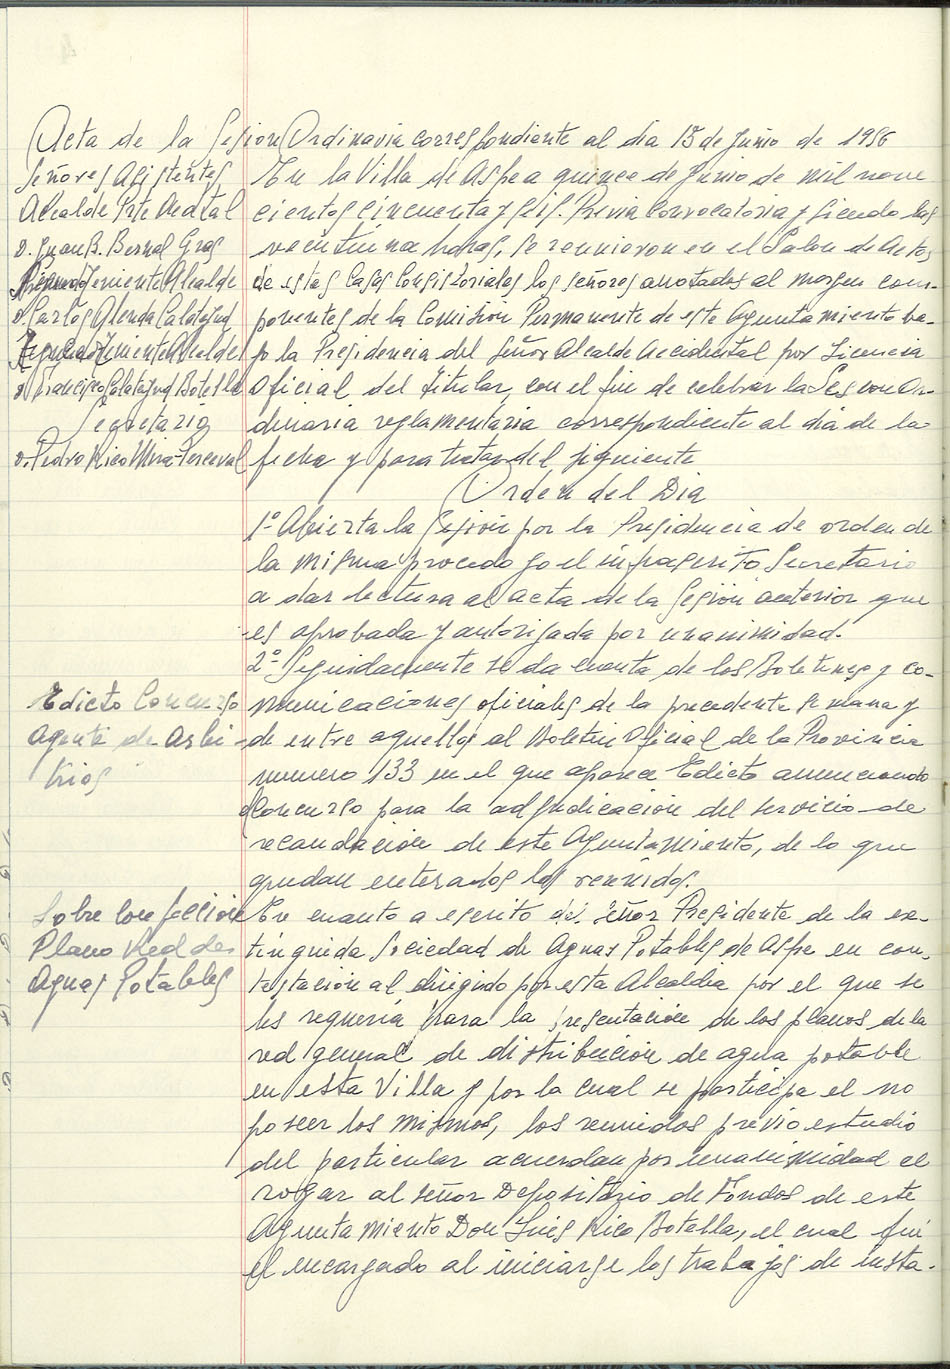 Acta de la Sesion Ordinaria correspondiente al dia 15 de Junio de 1956
Señores Asistentes
Alcalde Pste Acctal
D. Juan B. Bernal Gras
Primer Teniente Alcalde
D. Carlos Alenda Calatayud
Segundo Teniente Alcalde
D. Francisco Calatayud Botella
Secretario
D. Pedro Rico Mira-Perceval
En la Villa de Aspe a quince de Junio de mil nove
cientos cincuenta y seis. Previa Convocatoria y siendo las
veintiuna horas, se reunieron en el Salon de Actos
de estas Casas Consistoriales los señores anotados al margen com-
ponentes de la Comisión Permanente de este Ayuntamiento ba-
jo la Presidencia del Señor Alcalde Accidental por Licencia
Oficial del titular, con el fin de celebrar la Sesion Or-
dinaria reglamentaria correspondiente al día de la
fecha y para tratar del siguiente
Orden del Dia
1º Abierta la Sesión por la Presidencia de orden de
la misma procedo yo el infrascrito Secretario
a dar lectura al acta de la Sesión anterior que
es aprobada y autorizada por unanimidad.
2º Seguidamente se da cuenta de los Boletines y co-
municaciones oficiales de la precedente semana y
de entre aquellos al Boletin Oficial de la Provincia
numero 133 en el que aparece Edicto anunciando
Concurso para la adjudicación del servicio de
recaudación de este Ayuntamiento, de lo que
quedan enterados los reunidos.
Edicto Concurso
Agente de Arbi-
trios
Sobre confección
Plano Red de
Aguas Potables
En cuanto a escrito del Señor Presidente de la ex-
tinguida Sociedad de Aguas Potables de Aspe en con-
testación al dirigido por esta Alcaldia por el que se
les requería para la presentación de los planos de la
red general de distribución de agua potable
en esta Villa y por la cual se participa el no
poseer los mismos, los reunidos previo estudio
del particular acuerdan por unanimidad el
rogar al señor Depositario de Fondos de este
Ayuntamiento Don Luis Rico Botella, el cual fué
el encargado al iniciarse los trabajos de insta-